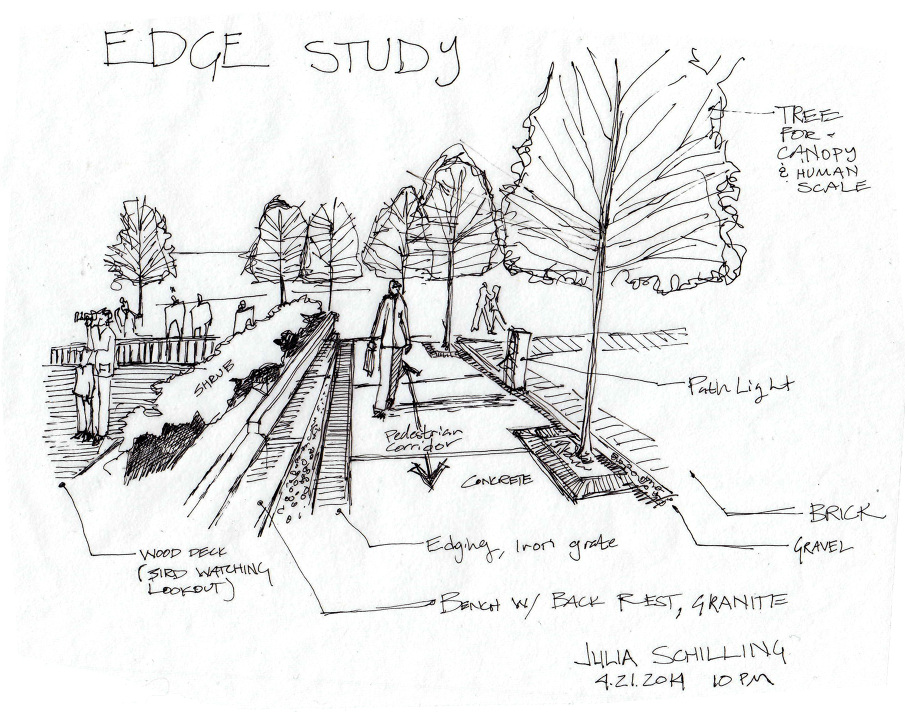 EDGE STUDY
TREE
FOR
CANOPY
& HUMAN
SCALE
SHRUB
Path Light
Pedestrian
Corridor
CONCRETE
BRICK
GRAVEL
Edging, Iron grate
WOOD DECK
(BIRD WATCHING
LOOKOUT)
BENCH W/ BACK REST, GRANITE
JULIA SCHILLING
4.21.2014 10 PM